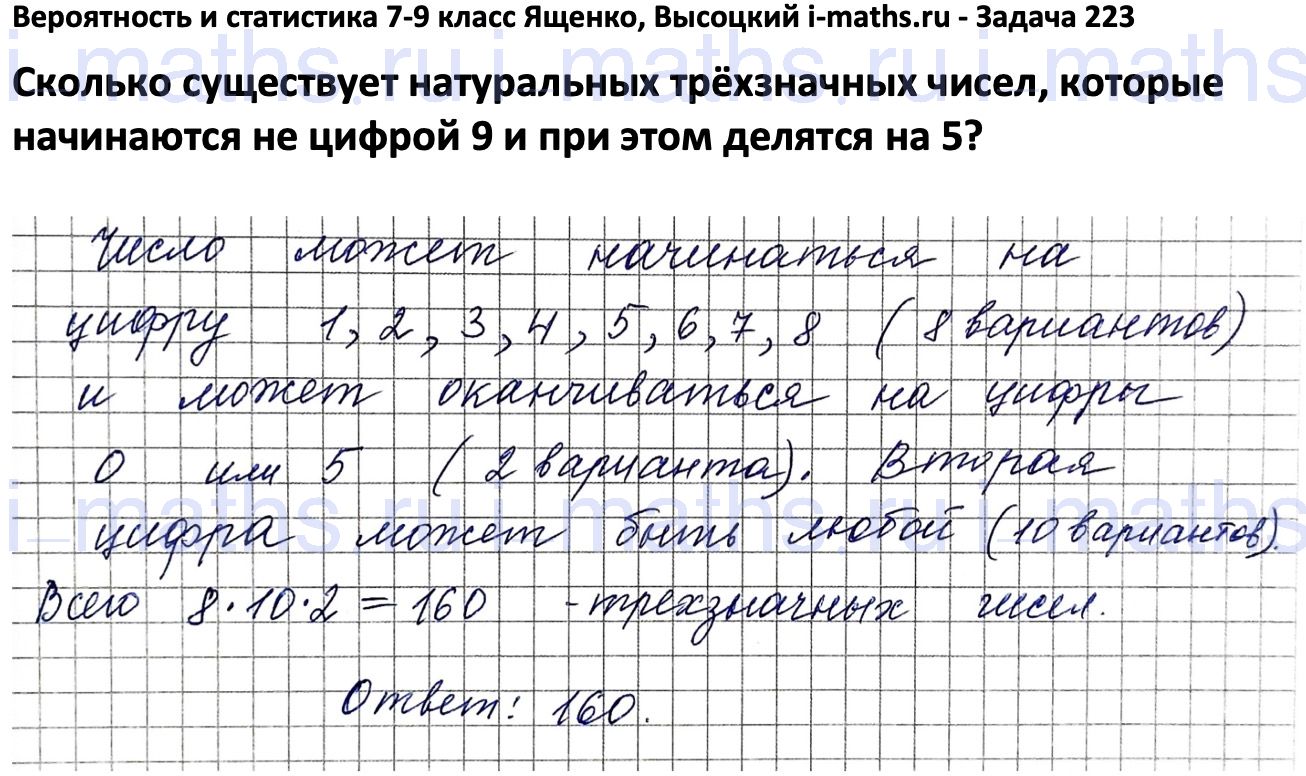 Вероятность и статистика 7-9 класс Ященко, Высоцкий i-maths.ru - Задача 223
Сколько существует натуральных трёхзначных чисел, которые
начинаются не цифрой 9 и при этом делятся на 5?
i-maths.ru i-maths.ru i-maths
Число может начинаться на
цифру 1, 2, 3, 4, 5, 6, 7, 8 (8 вариантов)
и может оканчиваться на цифры
0 или 5 (2 варианта). Вторая
i-maths.ru i-maths.ru i-maths
цифра может быть любой (10 вариантов).
Всего 8·10·2=160 - трехзначных чисел.
Ответ: 160.